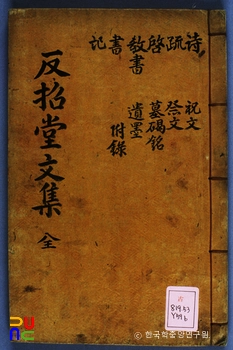 詩 祝文
疏 祭文
啓 墓碣銘
敎書 遺墨
書 附錄
記
反招堂文集 全
819.53
ⓒ 한국학중앙연구원